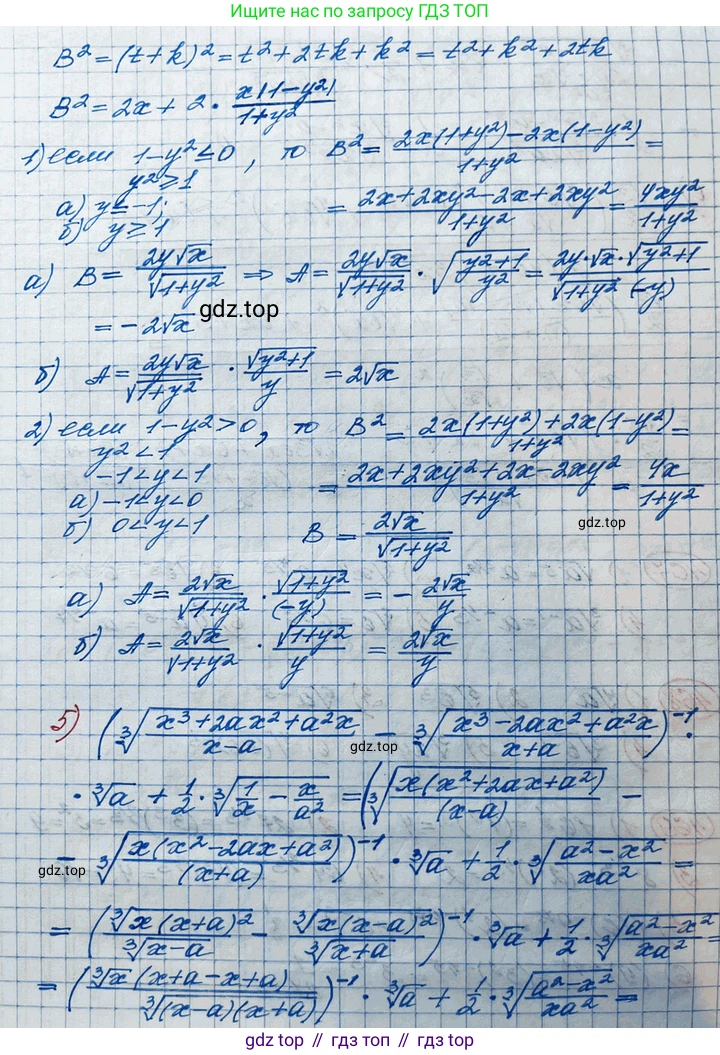 Ищите ответы по запросу ГДЗ ТОП
B² = (t+k)² = t² + 2tk + k² = t² + k² + 2tk
B² = 2x + 2 · x(1-y²)/(1+y²)
1) если 1-y² ≤ 0, то B² = (2x(1+y²) - 2x(1-y²))/(1+y²) =
y² ⩾ 1
а) y ≤ -1; = (2x + 2xy² - 2x + 2xy²)/(1+y²) = 4xy²/(1+y²)
б) y ⩾ 1
а) B = 2y√x/√(1+y²) ⇒ A = 2y√x/√(1+y²) · √((y²+1)/y²) = (2y·√x·√(y²+1))/(√(1+y²)·(-y))
= -2√x
gdz.top
б) A = 2y√x/√(1+y²) · √(y²+1)/y = 2√x
2) если 1-y² > 0, то B² = (2x(1+y²) + 2x(1-y²))/(1+y²) =
y² < 1
-1 < y < 1 = (2x + 2xy² + 2x - 2xy²)/(1+y²) = 4x/(1+y²)
а) -1 < y < 0
б) 0 < y < 1 B = 2√x/√(1+y²)
gdz.top
а) A = 2√x/√(1+y²) · √(1+y²)/(-y) = - 2√x/y
б) A = 2√x/√(1+y²) · √(1+y²)/y = 2√x/y
5) (∛((x³ + 2ax² + a²x)/(x-a)) - ∛((x³ - 2ax² + a²x)/(x+a)))⁻¹ ·
gdz.top
· ∛a + 1/2 · ∛(1/x - x/a²) = (∛(x(x² + 2ax + a²)/(x-a)) -
- ∛(x(x² - 2ax + a²)/(x+a)))⁻¹ · ∛a + 1/2 · ∛((a² - x²)/(xa²)) =
gdz.top
= (∛(x(x+a)²)/∛(x-a) - ∛(x(x-a)²)/∛(x+a))⁻¹ · ∛a + 1/2 · ∛((a² - x²)/(xa²)) =
= (∛x (x+a-x+a)/∛((x-a)(x+a)))⁻¹ · ∛a + 1/2 · ∛((a² - x²)/(xa²)) =
gdz.top || гдз топ || гдз.top